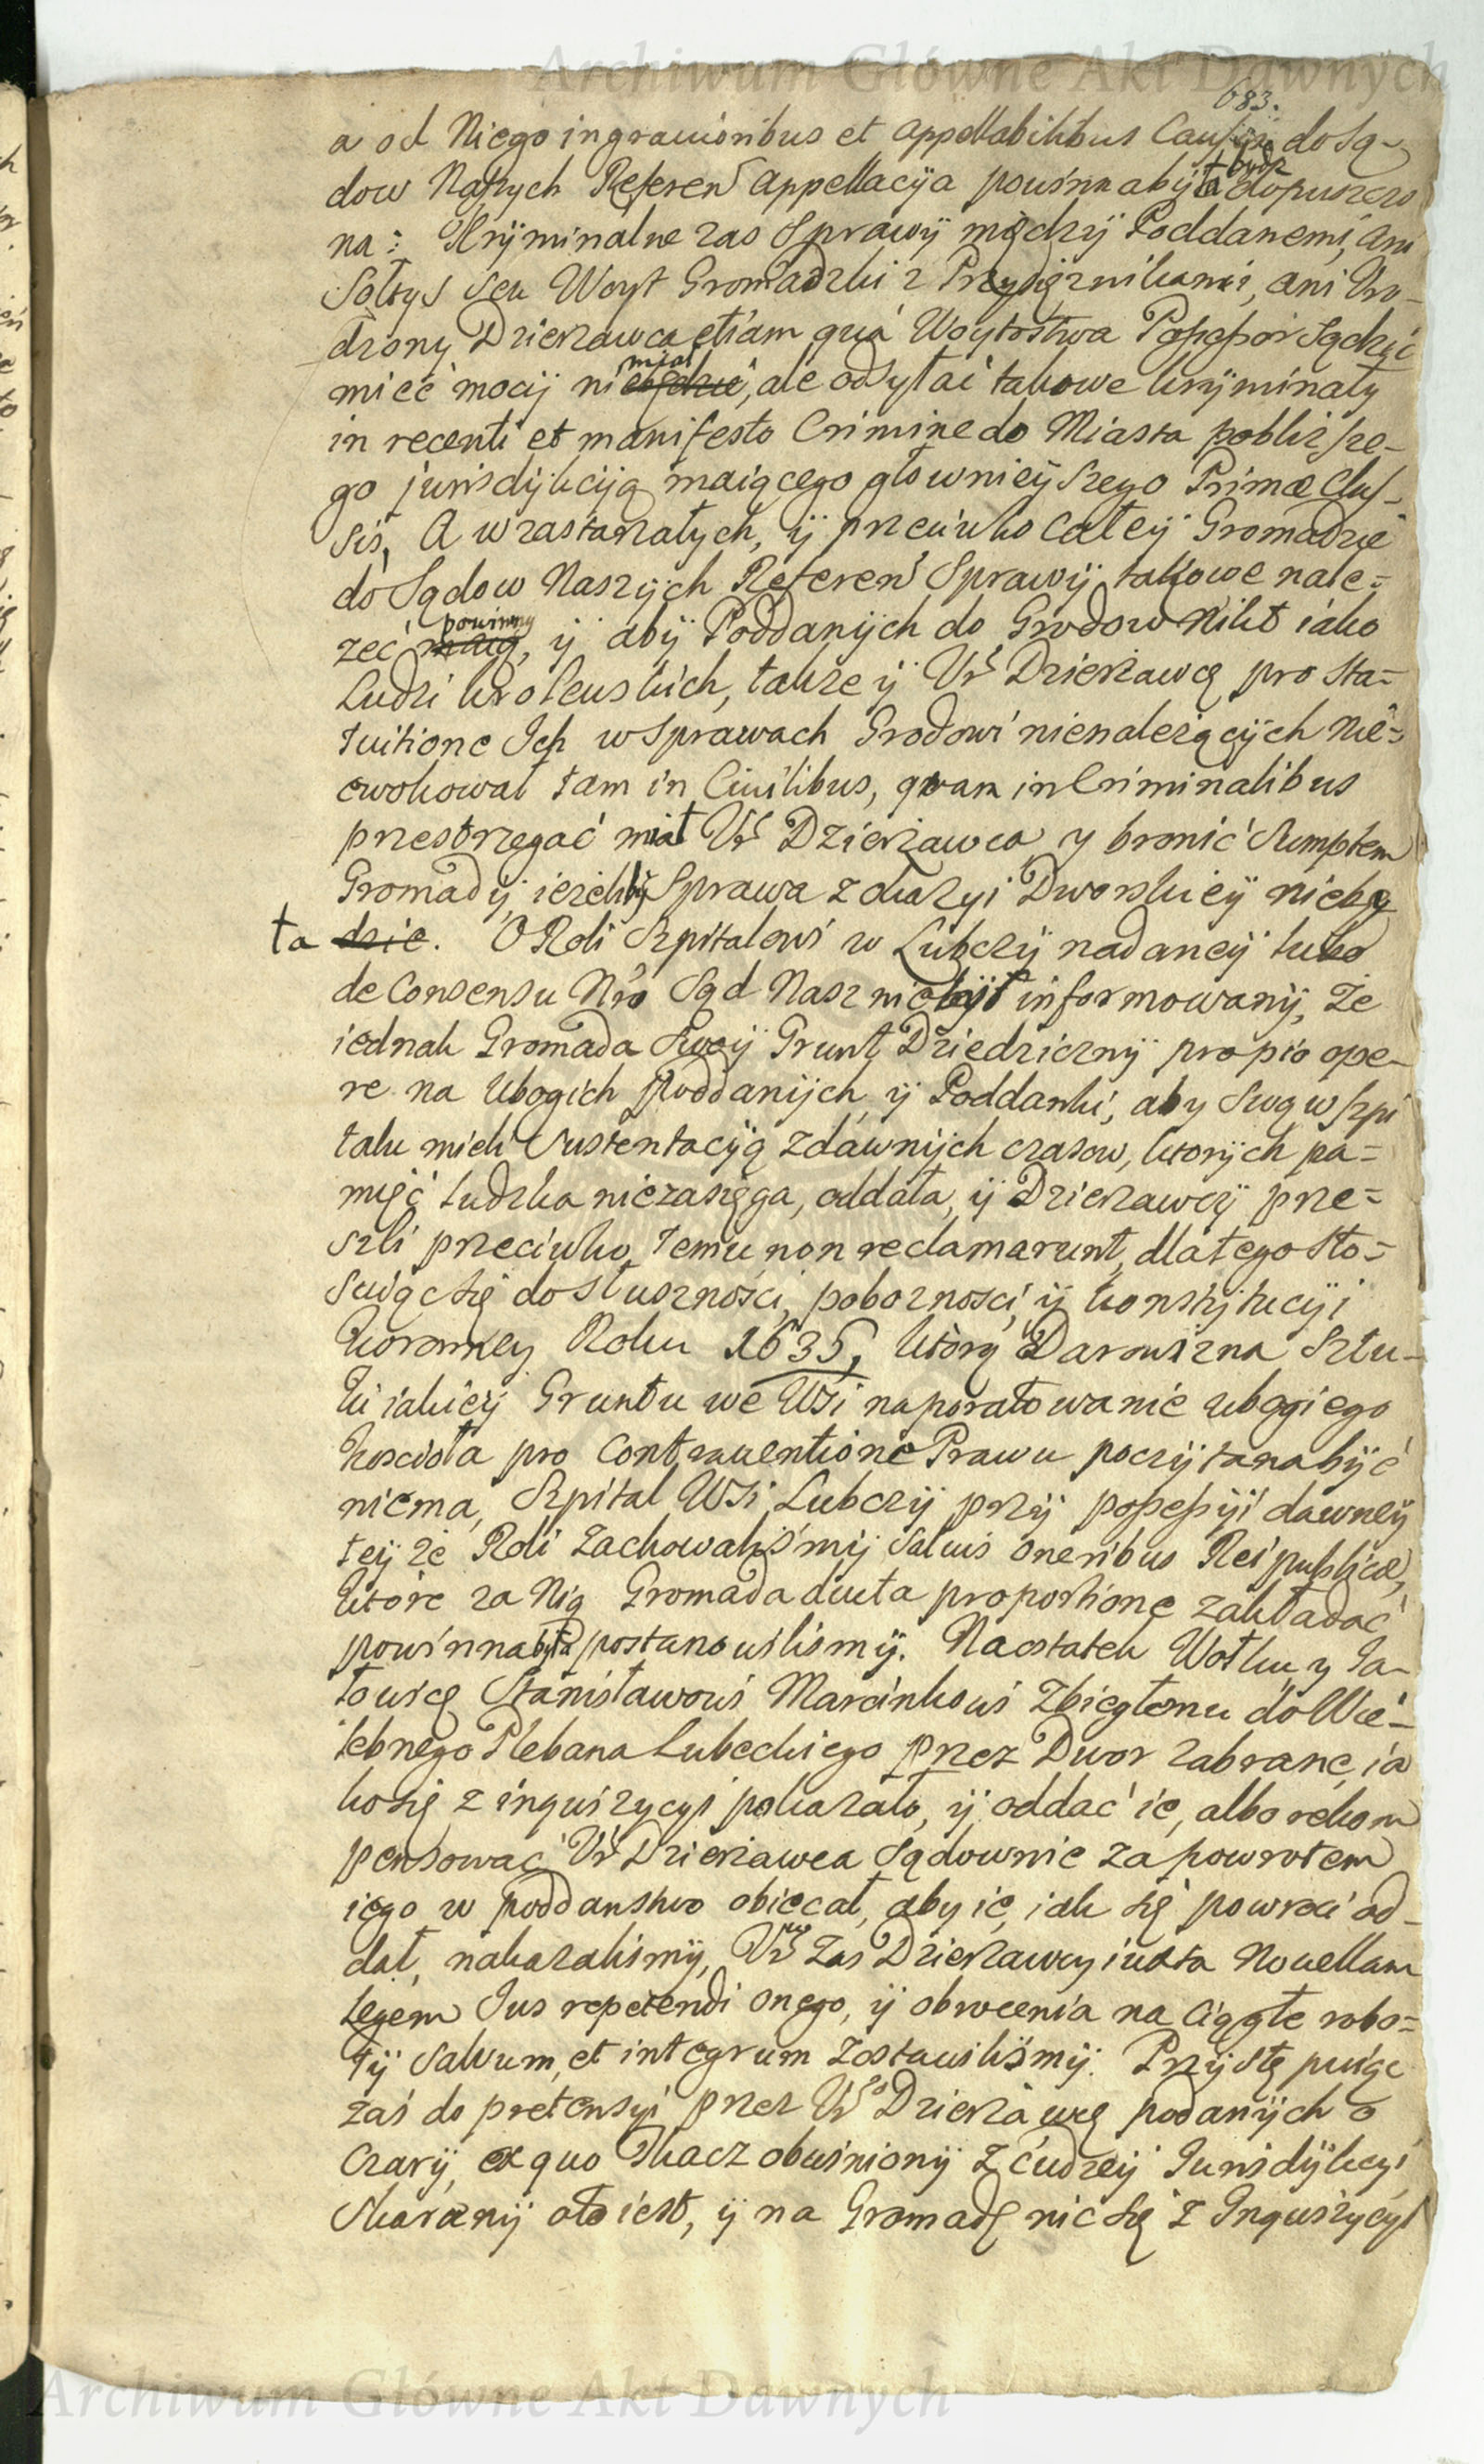 Archiwum Główne Akt Dawnych
683.
a od Niego in gravioribus et appellabilibus Causis do Są-
dow Naszych Referen appellacyia powinna był dopuszczo
na: Kryminalne zas Sprawÿ międzÿ Poddanemi, ani
Sołtys Seu Woyt Gromadzki z Przysiężnikami, ani Uro-
dzony Dzierzawca etiam quá Woytostwa Possessor Sądzic
miał
mieć mocÿ nie będzie, ale odsyłać takowe krÿminały
in recenti et manifesto Crimine do Miasta pobliższe-
go jurisdÿkcÿą maiącego głownieÿszego Primæ Clas-
sis, A w zastarzałych, ÿ przeciwko całeÿ Gromadzie
do Sądow Naszÿch Referen Sprawÿ takowe nale=
powinny
zeć maią, ÿ abÿ Poddanÿch do Grodow Nikt iako
Ludzi krolewskich, takze ÿ Ur Dzierzawcę pro sta=
tuitione Ich w Sprawach Grodowi nienalezącÿch nie=
ewokował tam in Civilibus, quam in Criminalibus
przestrzegać miał Ur Dzierzawca, y bronić Sumptem
Gromadÿ, iezeliby Sprawa z okazyi Dworskieÿ niebę
ta dzie. O Roli Szpitalowi w Lubczÿ nadaneÿ lubo
de Consensu Nro Sąd Nasz nie był informowanÿ, Że
iednak Gromada Swoÿ Grunt Dziedzicznÿ pro pio ope-
re na Ubogich Poddanÿch ÿ Poddanki, aby Swą w Szpi
talu mieli Sustentacÿą z dawnÿch czasow, ktorÿch pa=
mięć ludzka niezasięga, oddała, ÿ Dzierzawcÿ prze=
szli przeciwko temu non reclamarunt, dlatego sto=
suiąc się do słusznosci, poboznosci, ÿ konstÿtucÿi
Koronney Roku 1635, ktorą Darowizna Sztu-
ki iakieÿ Gruntu we Wsi na poratowanie ubogiego
Koscioła pro Contraventione Prawu poczÿtana bÿć
niema, Szpital Wsi Lubczÿ przÿ possessÿi dawneÿ
teÿ że Roli zachowaliśmÿ salvis oneribus Reipublicæ,
ktore za Nią Gromada ducta proportione zakładać
powinna była postanowilismÿ. Naostatek Wołku y Ja-
łowicę Stanisławowi Marcinkowi zbiegłemu do Wie-
lebnego Plebana Lubeckiego przez Dwor zabrane, ia
ko się z inquizycyi pokazało, ÿ oddać ie, albo rekom
pensować Ur Dzierzawca Sądownie za powrotem
iego w poddanstwo obiecał, aby ie, iak się powroci od-
dał, nakazalismÿ, Ur zas Dzierzawcy iuxta Novellam
Legem Jus repetendi onego, ÿ obrocenia na ciągłe robo=
tÿ Salvum, et integrum zostawilismÿ. Przÿstępuiąc
zaś do pretensyi przez Ur Dzierzawcę podanÿch o
Czarÿ, ex quo Tkacz obwinionÿ z cudzeÿ Jurisdÿkcyi,
Skaranÿ oto iest, ÿ na Gromadę nic się z Inquizycyi
Archiwum Główne Akt Dawnych